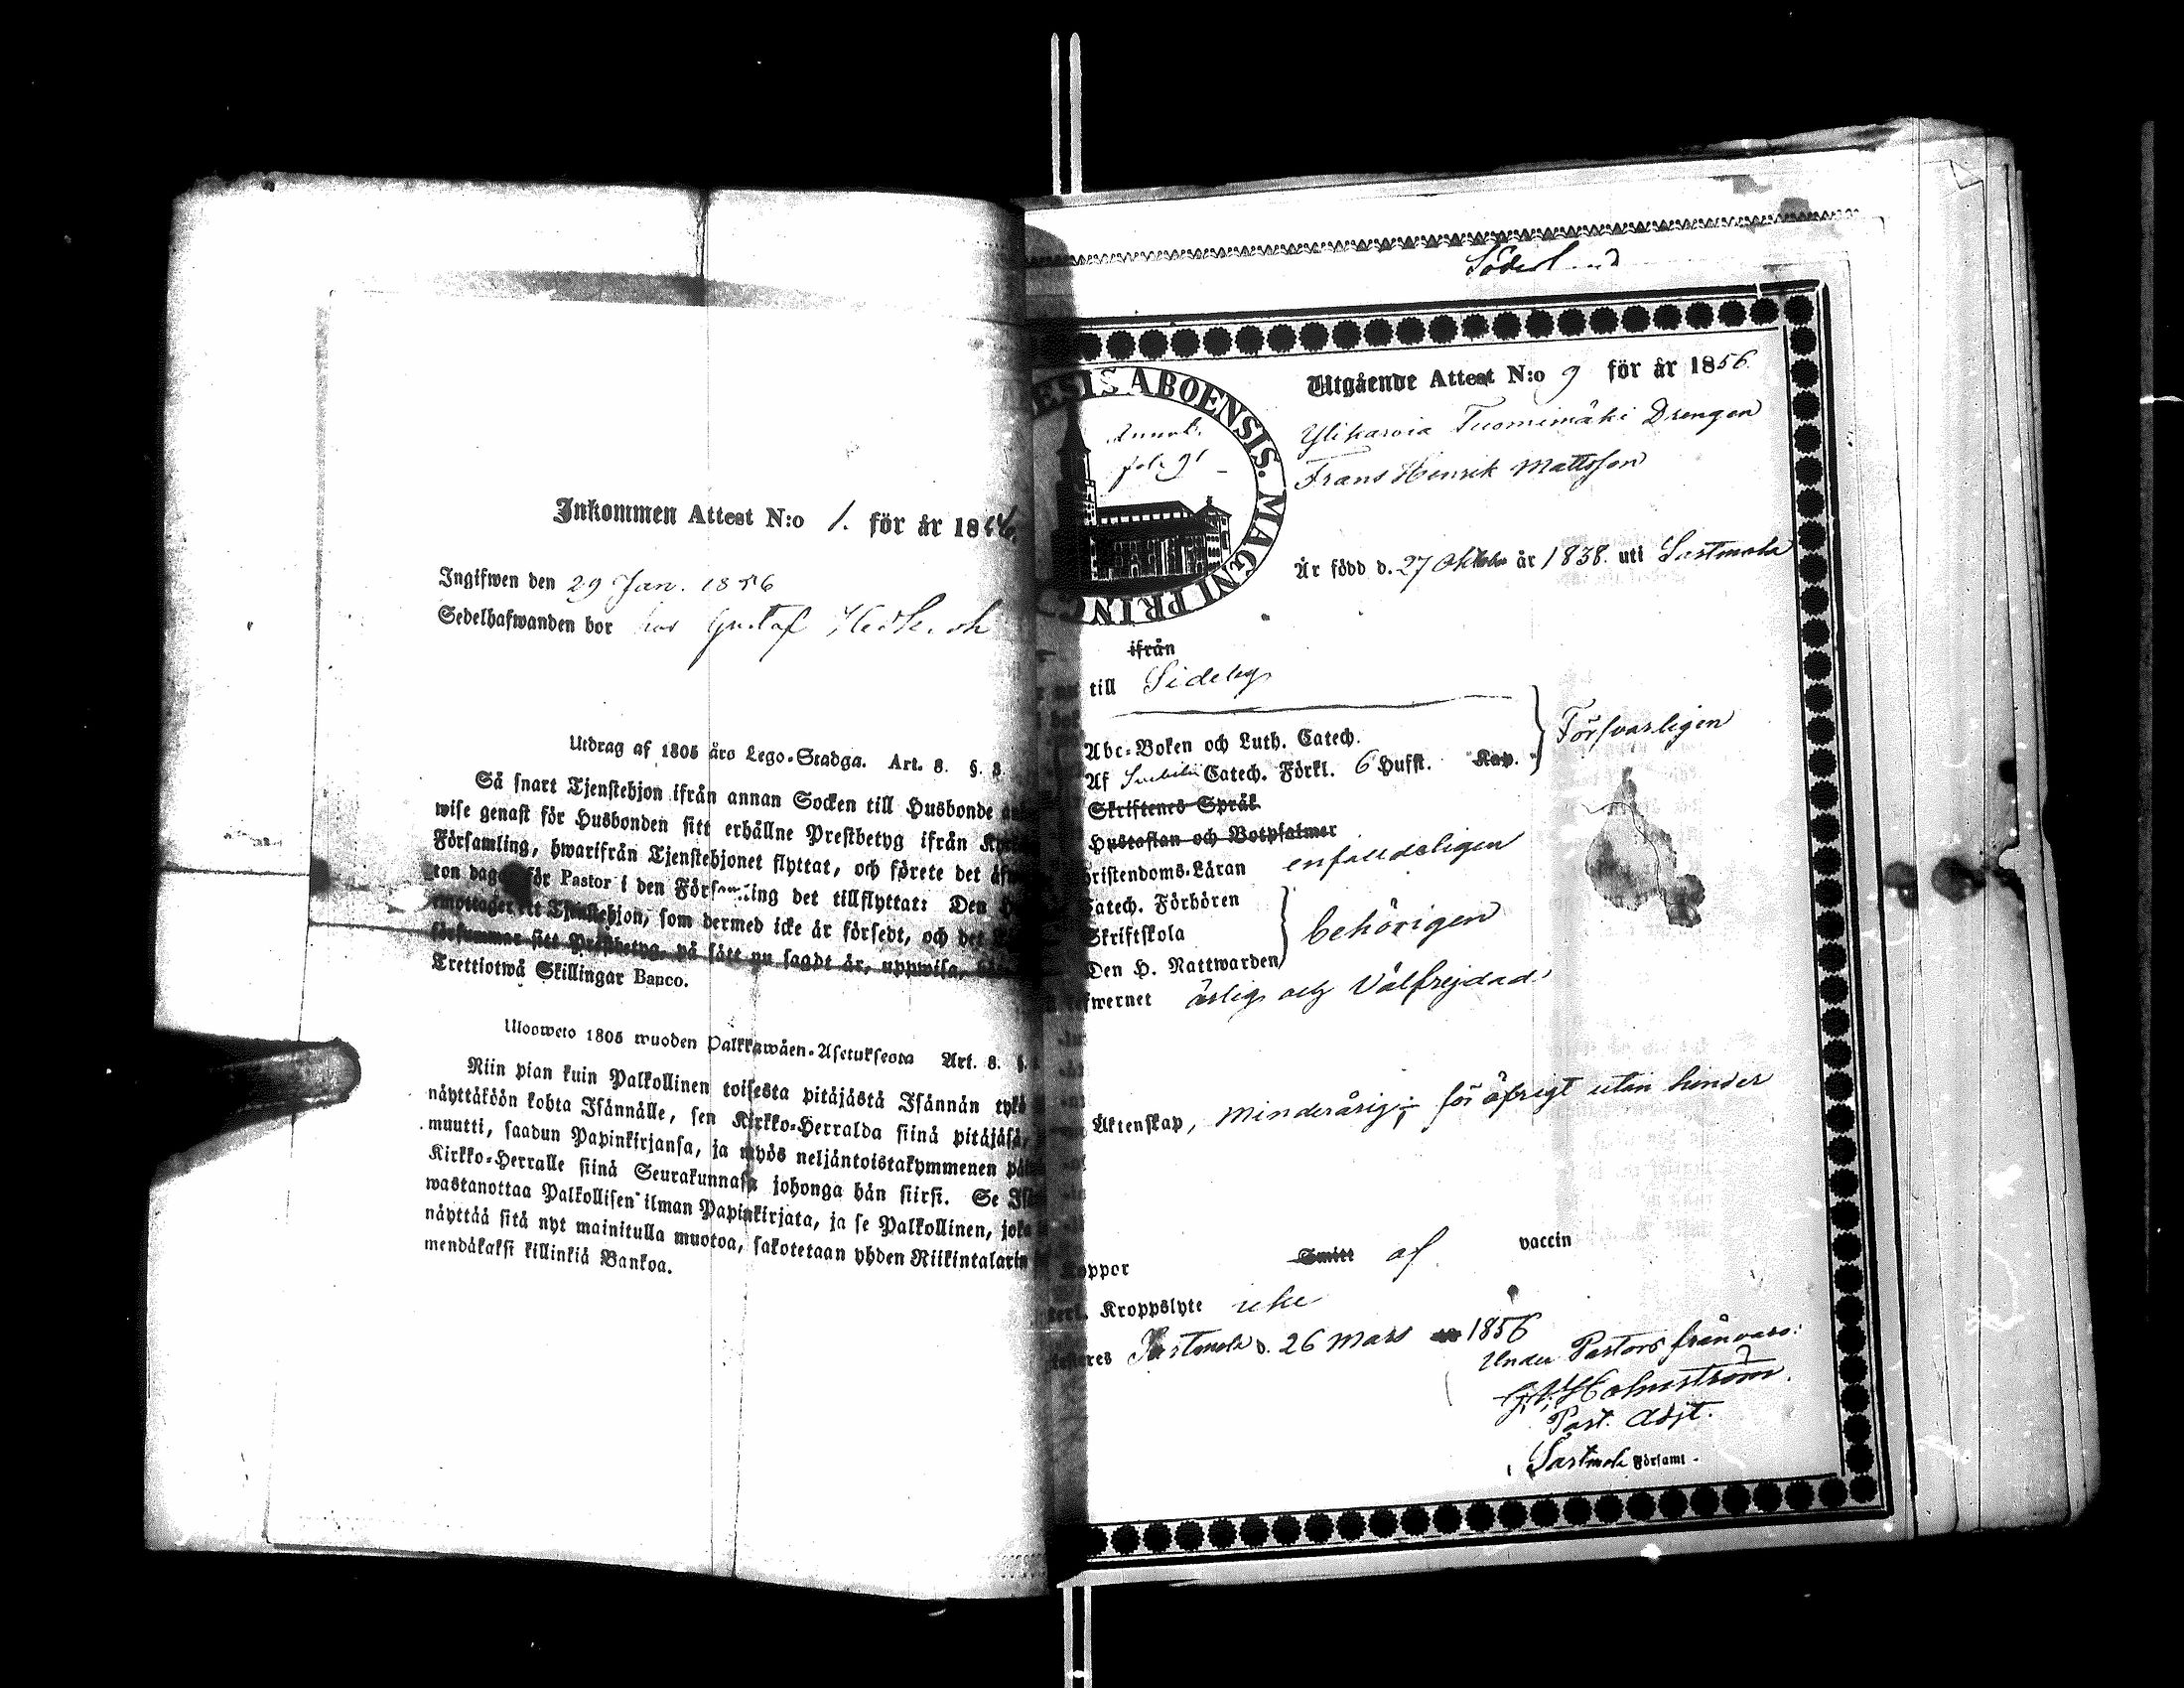 Inkommen Attest N:o 1. för år 1856
Ingifwen den 29 Jan. 1856
Sedelhafwanden bor hos Gustaf
Utdrag af 1805 års Lego-Stadga. Art. 8. §. 8
Så snart Tjenstehjon ifrån annan Socken till Husbonde
wise genast för Husbonden sitt erhållne Prestbetyg ifrån
Församling, hwarifrån Tjenstehjonet flyttat, och förete det
ton dagar för Pastor i den Församling det tillflyttat: Den
emottager ett Tjenstehjon, som dermed icke är försedt, och det
försummar sitt Prestbetyg, på sätt nu sagdt är, uppwisa,
Trettiotwå Skillingar Banco.
Ulosweto 1805 wuoden Palkkawäen-Asetuksesta Art. 8. §.
Niin pian kuin Palkollinen toisesta pitäjästä Isännän tykö
näyttäköön kohta Isännälle, sen Kirkko-Herralda siinä pitäjäsä,
muutti, saadun Papinkirjansa, ja myös neljäntoistakymmenen
Kirkko-Herralle siinä Seurakunnasa johonga hän siirsi. Se
wastanottaa Palkollisen ilman Papinkirjata, ja se Palkollinen, joka
näyttää sitä nyt mainitulla muotoa, sakotetaan yhden Riikintalarin
mendäkaksi killinkiä Bankoa.
Söderl
ESIS ABOENSIS. MAGNI PRINC
fol. 91
Utgående Attest N:o 9 för år 1856
Ylikarvia Tuomimäki Drengen
Frans Henrik Mattsson
Är född d. 27 Oktober år 1838. uti Sastmola
ifrån
till Sideby
Abc-Boken och Luth. Catech.
Af Catech. Förkl. 6 Hufst. Kap. Försvarligen
Skriftenes Språk
Hustaflan och Botpsalmer
Christendoms-Läran enfalldeligen
Catech. Förhören
Skriftskola behörigen
Den H. Nattwarden
lefwernet ärlig och Välfrejdad
Äktenskap, Minderårig; för öfrigt utan hinder
Koppor Smitt af vaccin
Kroppslyte icke
testeres Sastmola d. 26 Mars 1856
Under Pastors frånvaro:
Holmström.
Past. Adjt.
i Sastmola Församl.